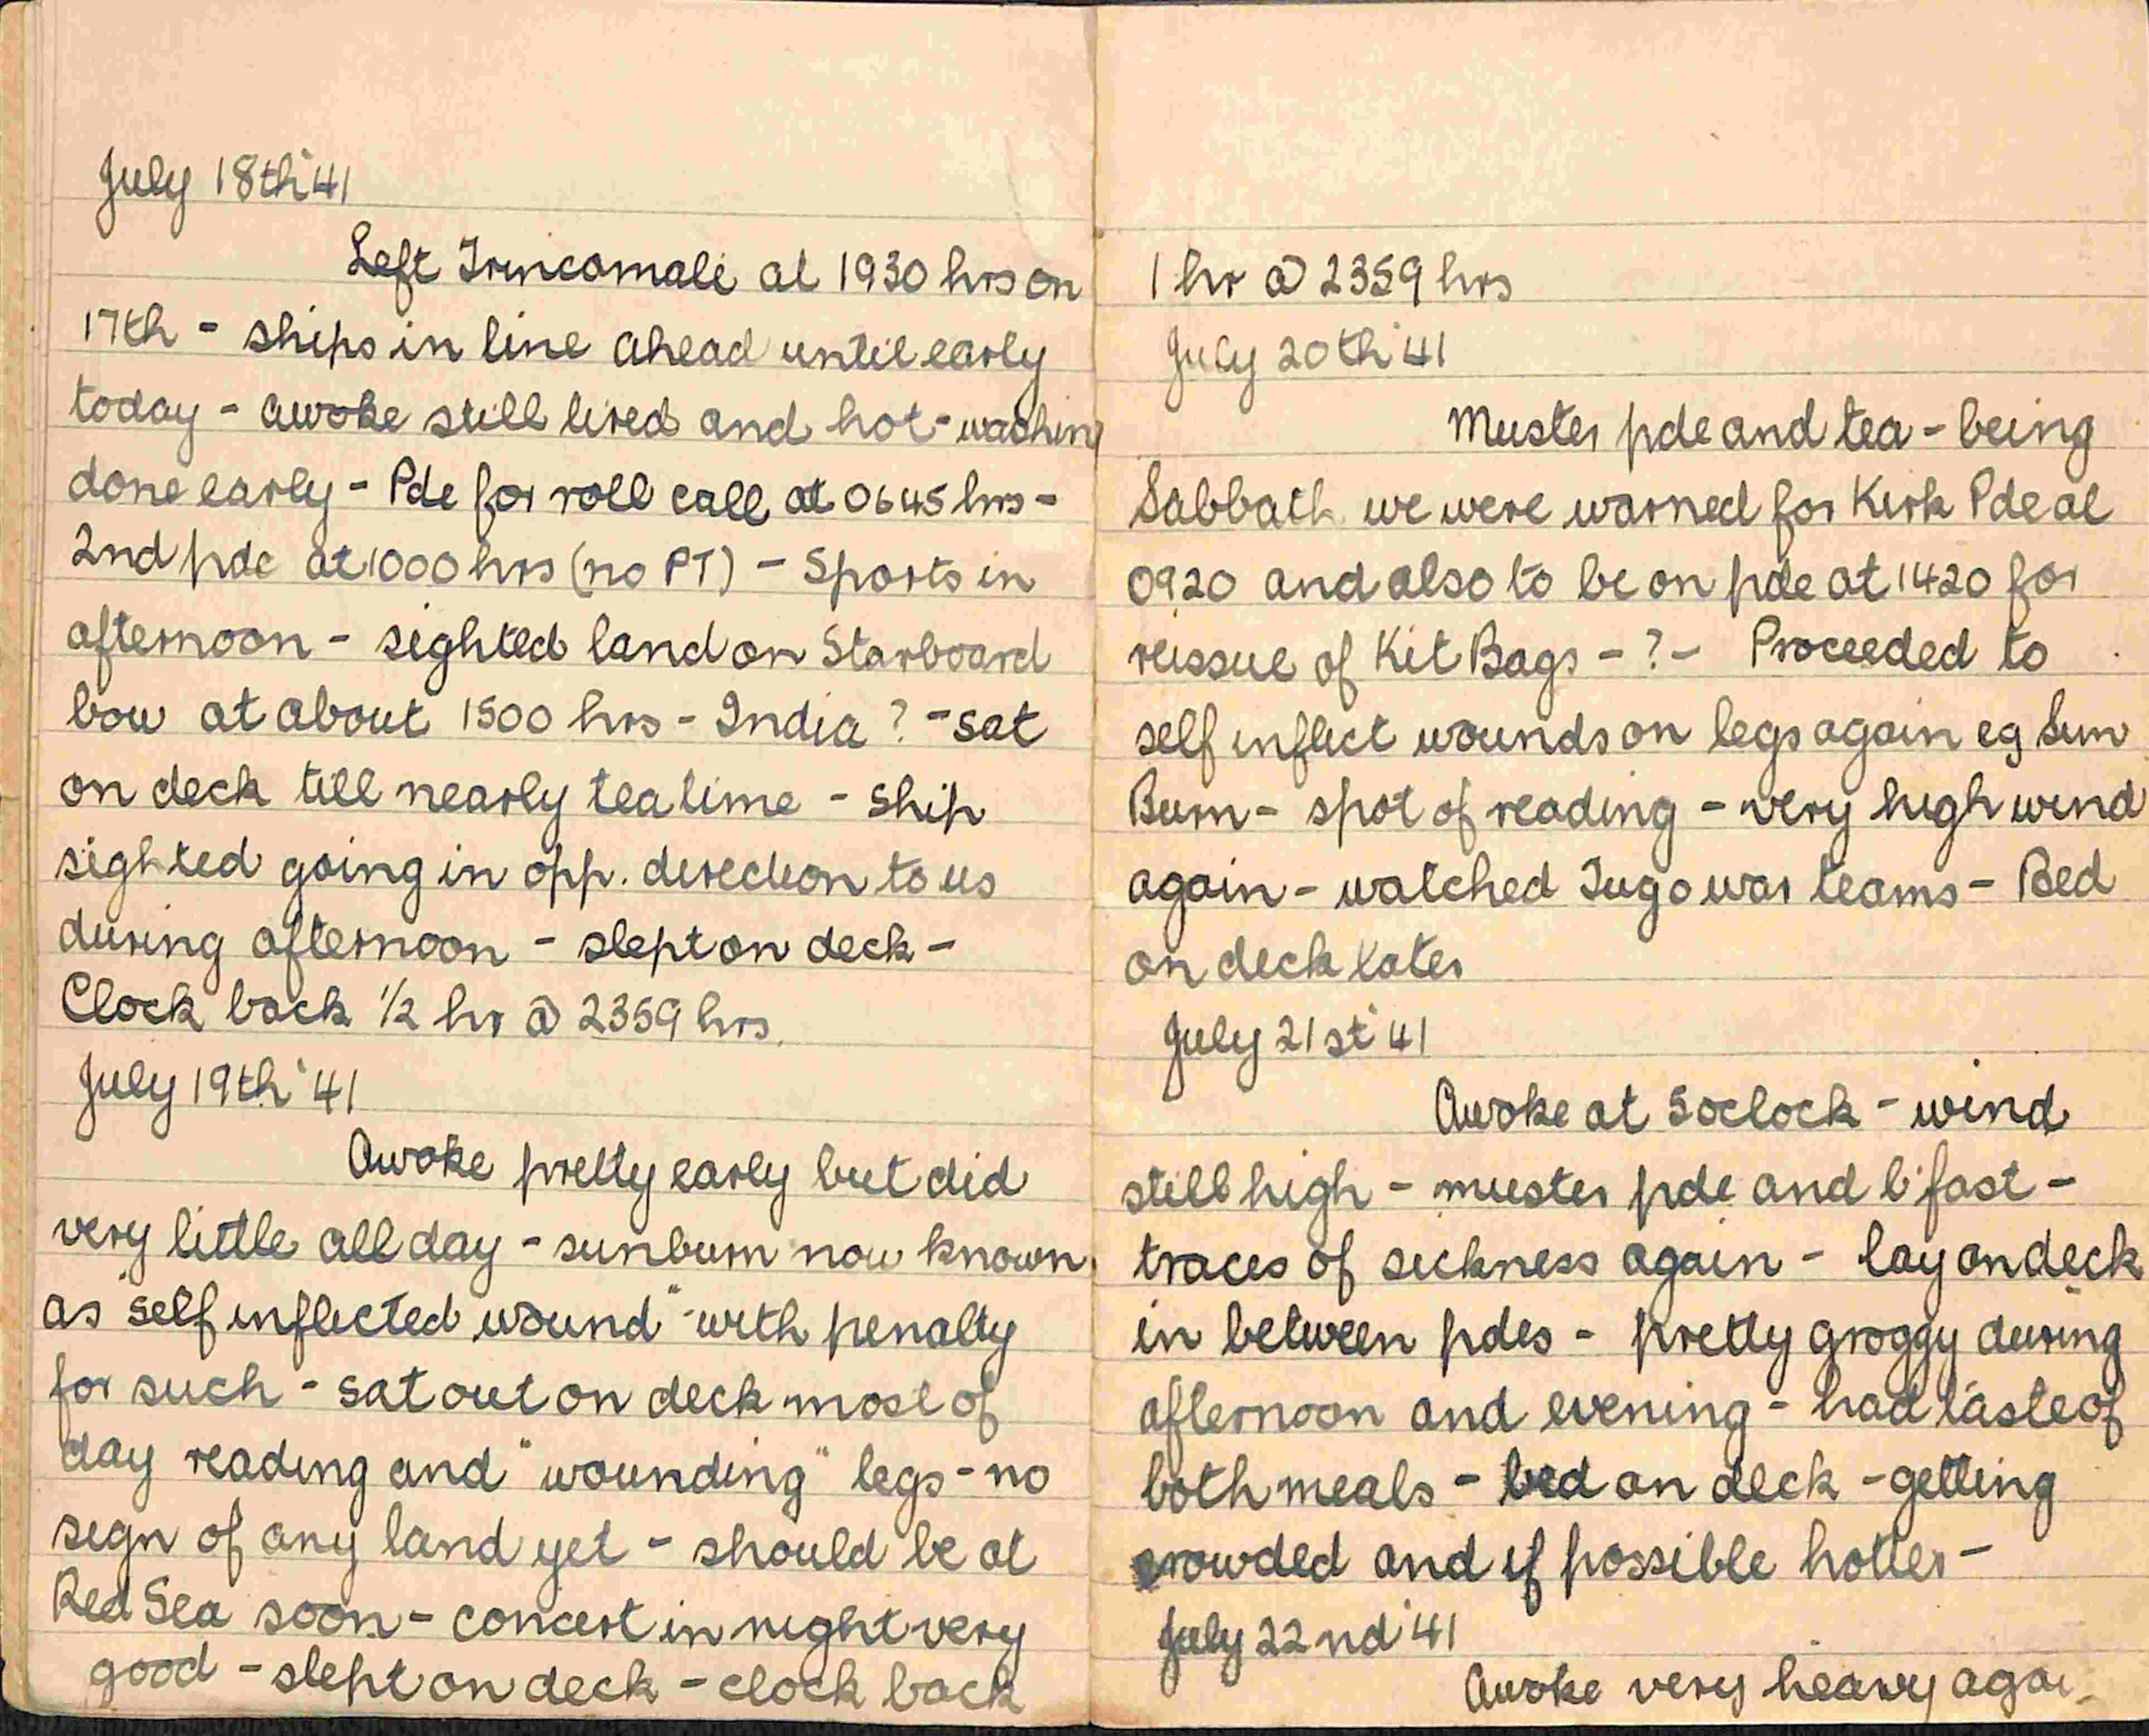 July 18th '41
Left Trincomali at 1930 hrs on
17th - ships in line ahead until early
today - awoke still tired and hot - washing
done early - Pde for roll call at 0645 hrs -
2nd pde at 1000 hrs (no PT) - Sports in
afternoon - sighted land on Starboard
bow at about 1500 hrs - India ? - sat
on deck till nearly tea time - ship
sighted going in opp. direction to us
during afternoon - slept on deck -
Clock back 1/2 hr @ 2359 hrs.
July 19th '41
Awoke pretty early but did
very little all day - sunburn now known
as "self inflicted wound" - with penalty
for such - sat out on deck most of
day reading and "wounding" legs - no
sign of any land yet - should be at
Red Sea soon - concert in night very
good - slept on deck - clock back
1 hr @ 2359 hrs
July 20th '41
Muster pde and tea - being
Sabbath we were warned for Kirk Pde at
0920 and also to be on pde at 1420 for
reissue of Kit Bags - ? - Proceeded to
self inflict wounds on legs again eg Sun
Burn - spot of reading - very high wind
again - watched Tug o war teams - Bed
on deck later
July 21st '41
Awoke at 5 oclock - wind
still high - muster pde and b'fast -
traces of sickness again - lay on deck
in between pdes - pretty groggy during
afternoon and evening - had taste of
both meals - bed on deck - getting
crowded and if possible hotter -
July 22nd '41
Awoke very heavy agai